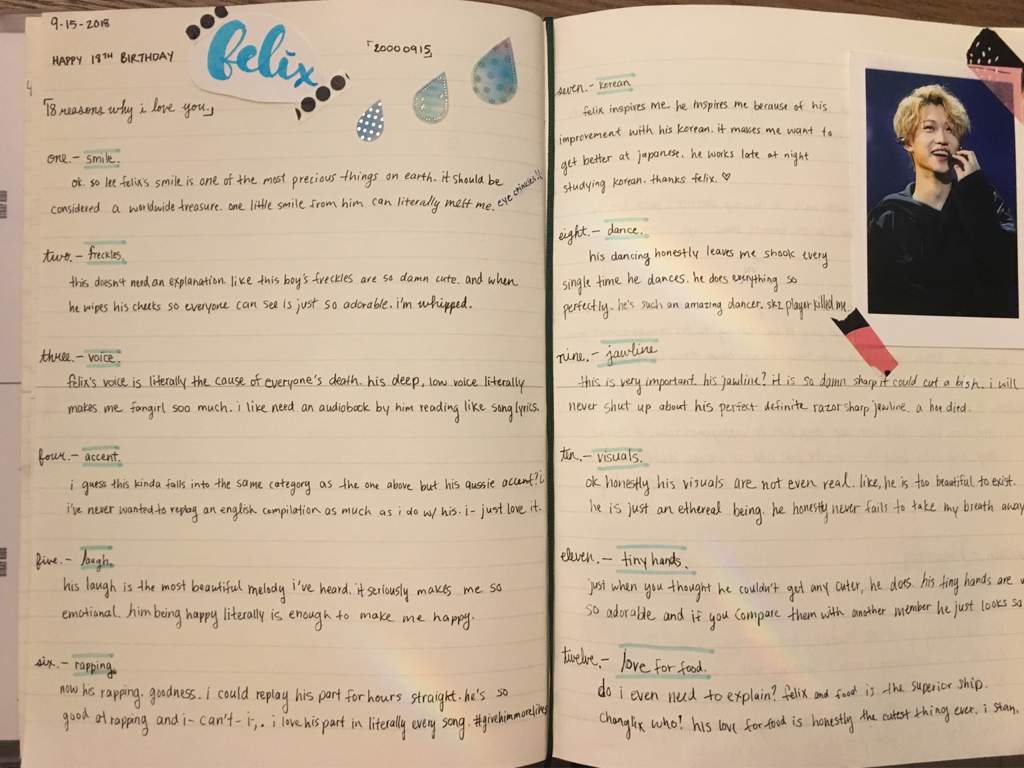 9-15-2018
HAPPY 18TH BIRTHDAY
felix
「20000915」
「18 reasons why i love you.」
one.- smile.
ok. so lee felix's smile is one of the most precious things on earth. it should be
considered a worldwide treasure. one little smile from him can literally melt me. eye crinkles!!
two.- freckles.
this doesn't need an explanation like this boy's freckles are so damn cute. and when
he wipes his cheeks so everyone can see is just so adorable. i'm whipped.
three.- voice.
felix's voice is literally the cause of everyone's death. his deep, low voice literally
makes me fangirl soo much. i like need an audiobook by him reading like song lyrics.
four.- accent.
i guess this kinda falls into the same category as the one above but his aussie accent?i
i've never wanted to replay an english compilation as much as i do w/ his. i- just love it.
five.- laugh.
his laugh is the most beautiful melody i've heard. it seriously makes me so
emotional. him being happy literally is enough to make me happy.
six.- rapping.
now his rapping. goodness. i could replay his part for hours straight. he's so
good at rapping and i- can't- i,. i love his part in literally every song. #givehimmorelines
seven.- korean
felix inspires me. he inspires me because of his
improvement with his korean. it makes me want to
get better at japanese. he works late at night
studying korean. thanks felix. ♡
eight.- dance.
his dancing honestly leaves me shook every
single time he dances. he does everything so
perfectly. he's such an amazing dancer. skz player killed me.
nine.- jawline
this is very important. his jawline? it is so damn sharp it could cut a bish. i will
never shut up about his perfect definite razor sharp jawline. a hoe died.
ten.- visuals.
ok honestly his visuals are not even real. like, he is too beautiful to exist.
he is just an ethereal being. he honestly never fails to take my breath away
eleven.- tiny hands.
just when you thought he couldn't get any cuter, he does. his tiny hands are
so adorable and if you compare them with another member he just looks so
twelve.- love for food.
do i even need to explain? felix and food is the superior ship.
changlix who? his love for food is honestly the cutest thing ever. i stan.